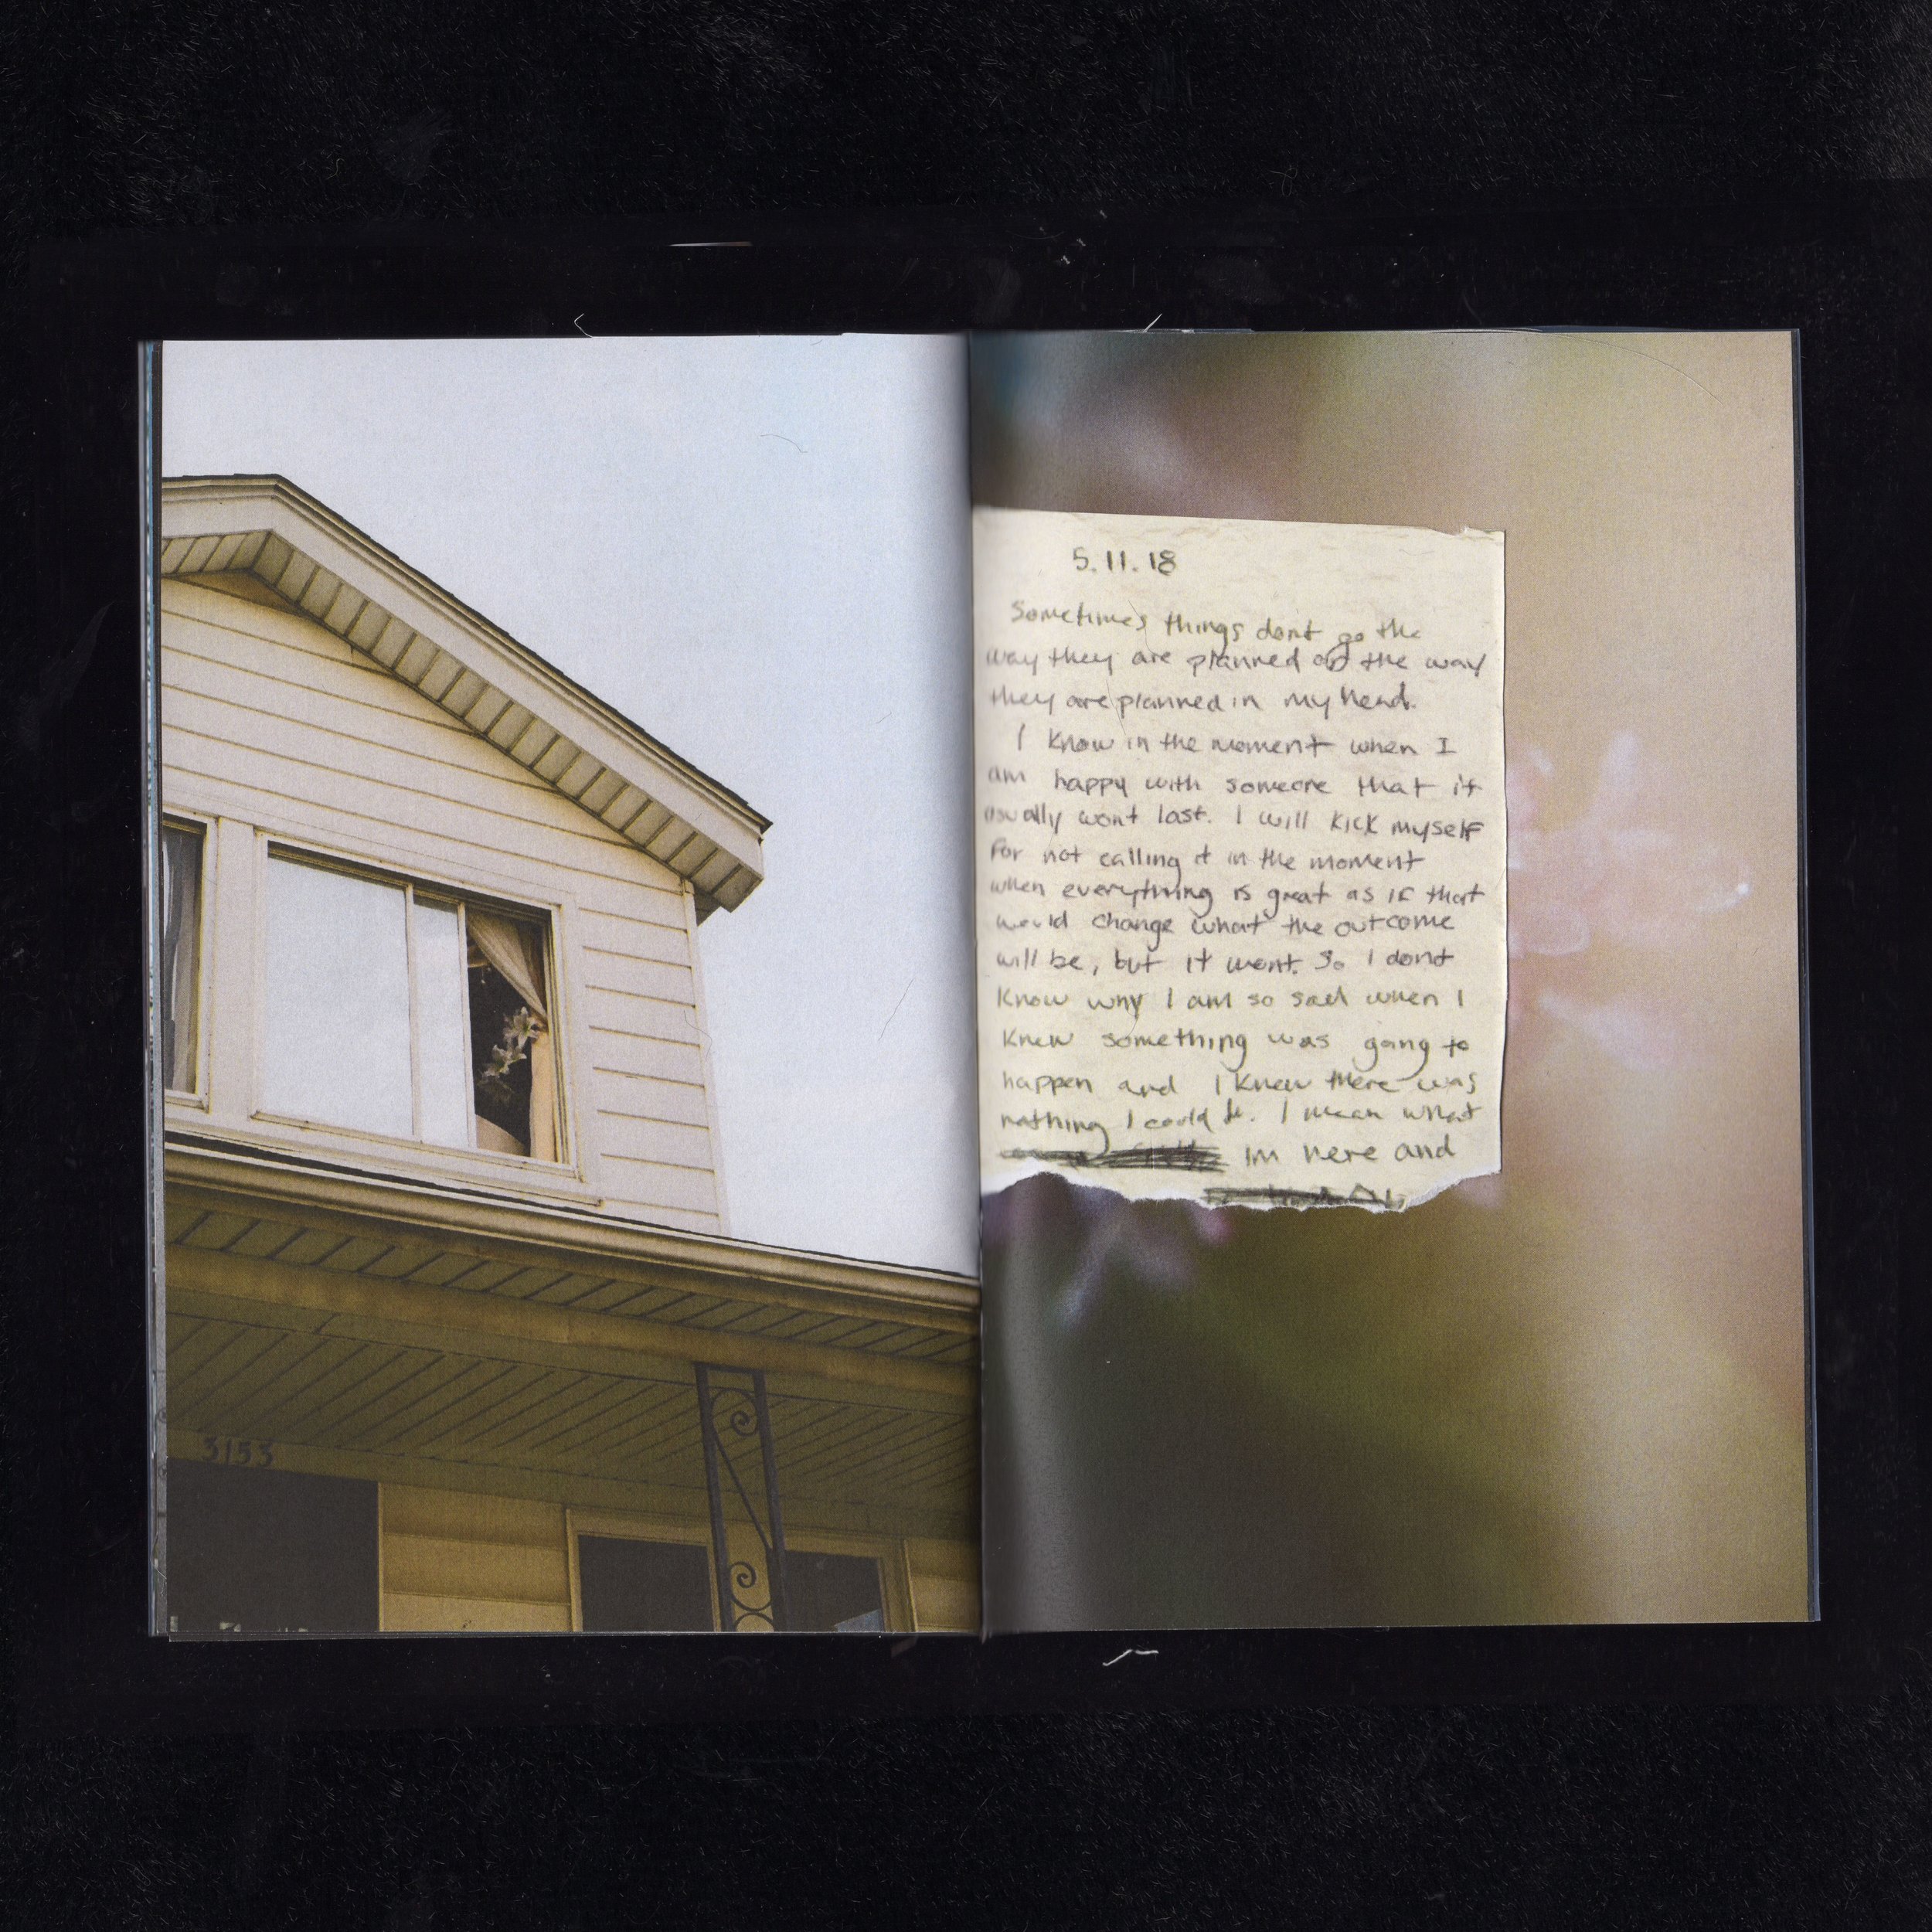 3153
5.11.18
Sometimes things dont go the
way they are planned or the way
they are planned in my head.
I know in the moment when I
am happy with someone that it
usually wont last. I will kick myself
for not calling it in the moment
when everything is great as if that
would change what the outcome
will be, but it wont. So I dont
know why I am so sad when I
knew something was going to
happen and I knew there was
nothing I could do. I mean what
im here and